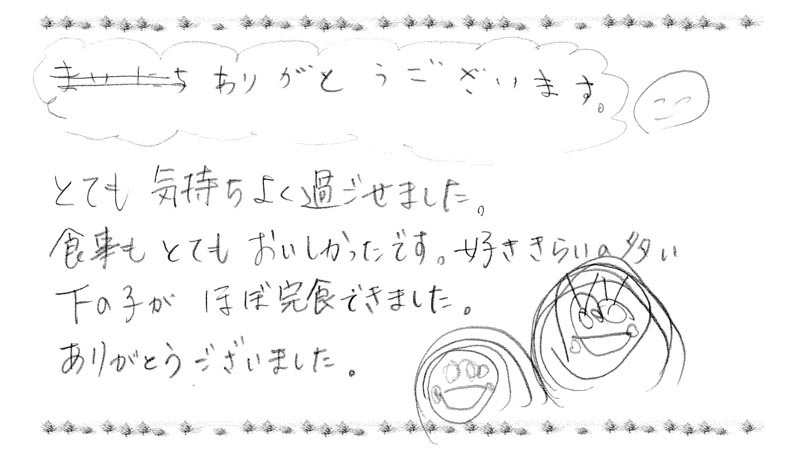 ありがとうございます。
とても 気持ちよく過ごせました。
食事もとてもおいしかったです。好ききらいの多い
下の子が ほぼ完食できました。
ありがとうございました。